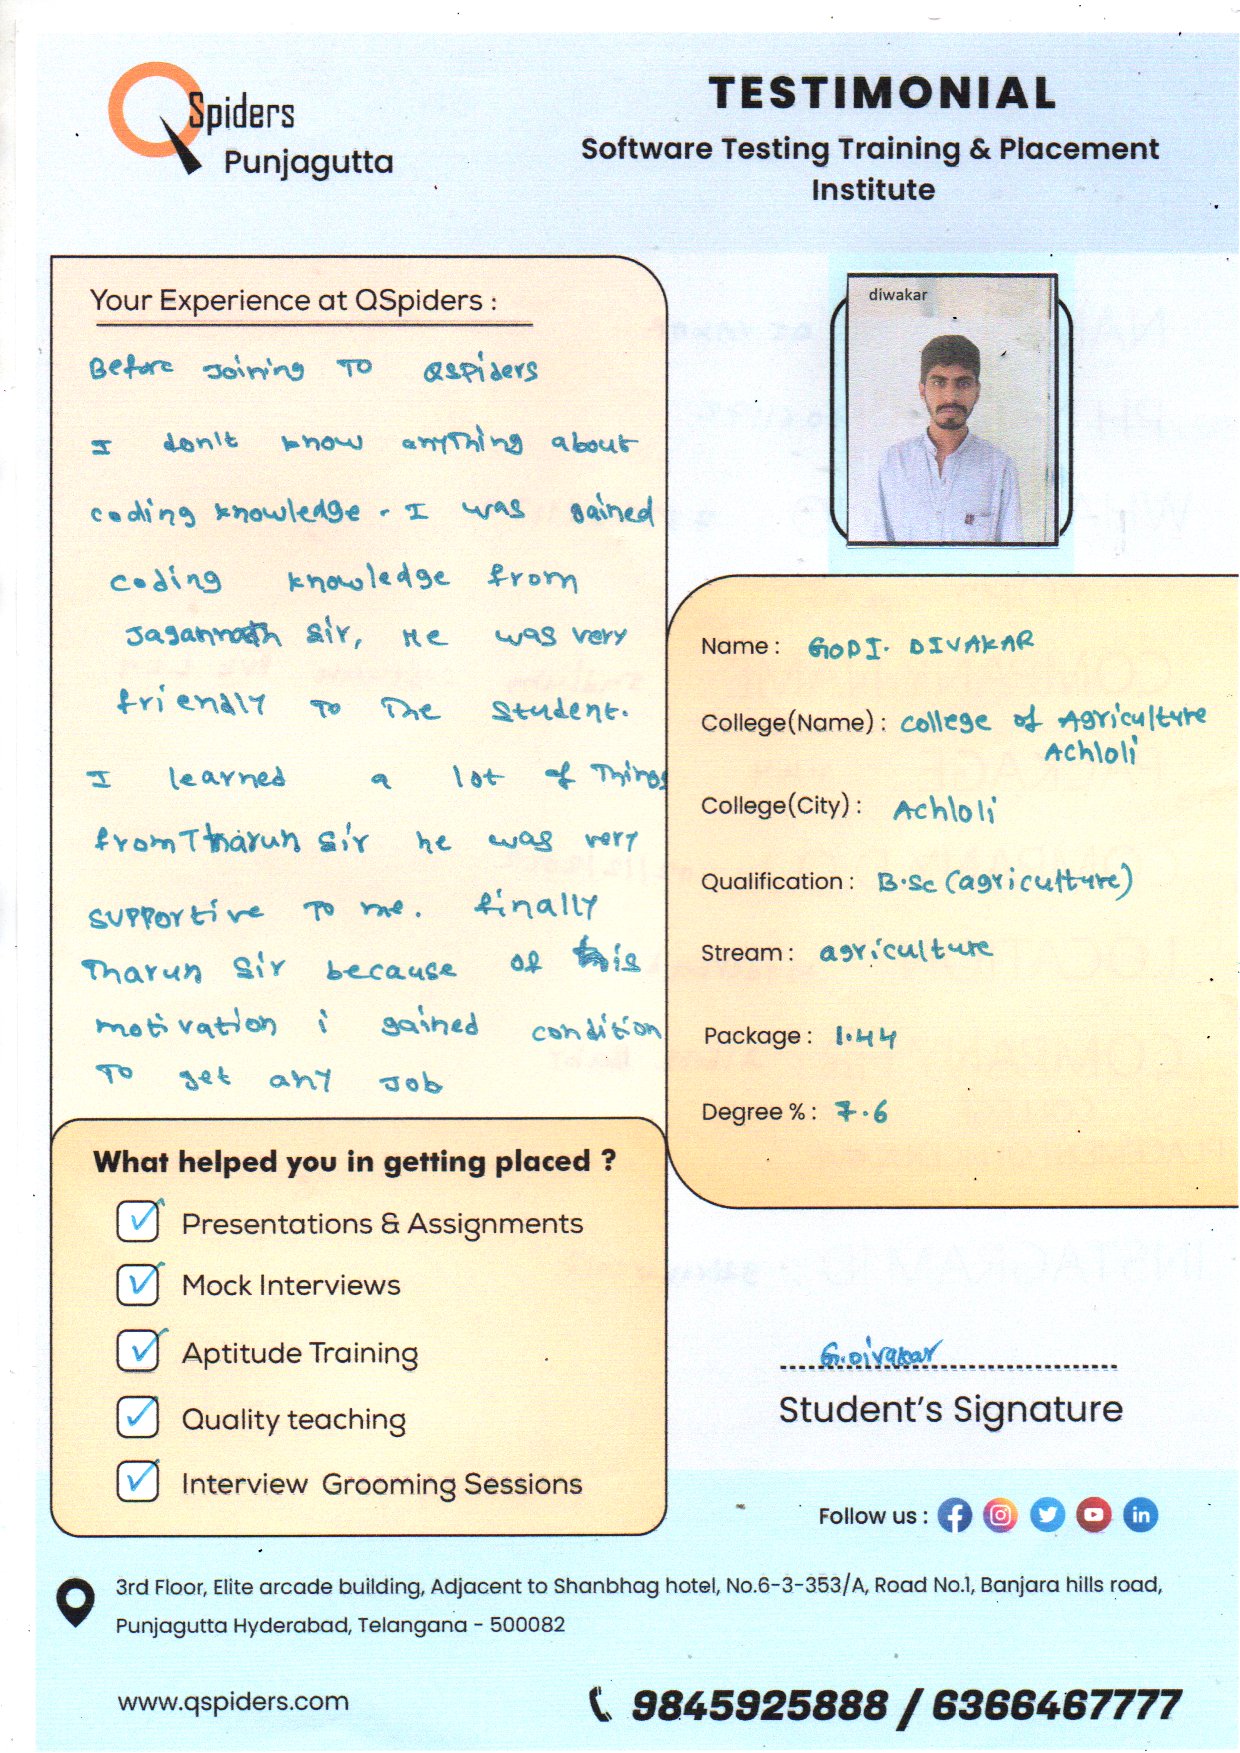 QSpiders
Punjagutta
TESTIMONIAL
Software Testing Training & Placement
Institute
Your Experience at QSpiders :
Before Joining TO QSPiders
I don't know anyThing about
coding knowledge. I was gained
coding knowledge from
Jagannath Sir, He was very
friendly To The Student.
I learned a lot of Things
from Tharun Sir he was very
supportive To me. finally
Tharun Sir because of this
motivation i gained condition
To get any Job
What helped you in getting placed ?
Presentations & Assignments
Mock Interviews
Aptitude Training
Quality teaching
Interview Grooming Sessions
diwakar
Name : GODI. DIVAKAR
College(Name) : college of Agriculture
Achloli
College(City) : Achloli
Qualification : B.Sc (agriculture)
Stream : agriculture
Package : 1.44
Degree % : 7.6
G.Divakar
Student's Signature
Follow us :
3rd Floor, Elite arcade building, Adjacent to Shanbhag hotel, No.6-3-353/A, Road No.1, Banjara hills road,
Punjagutta Hyderabad, Telangana - 500082
www.qspiders.com
9845925888 / 6366467777